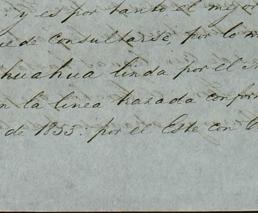 y es por tanto el mejor
uede consultarse, por lo m
huahua linda por el
n la linea trazada confor
de 1853: por el Este con